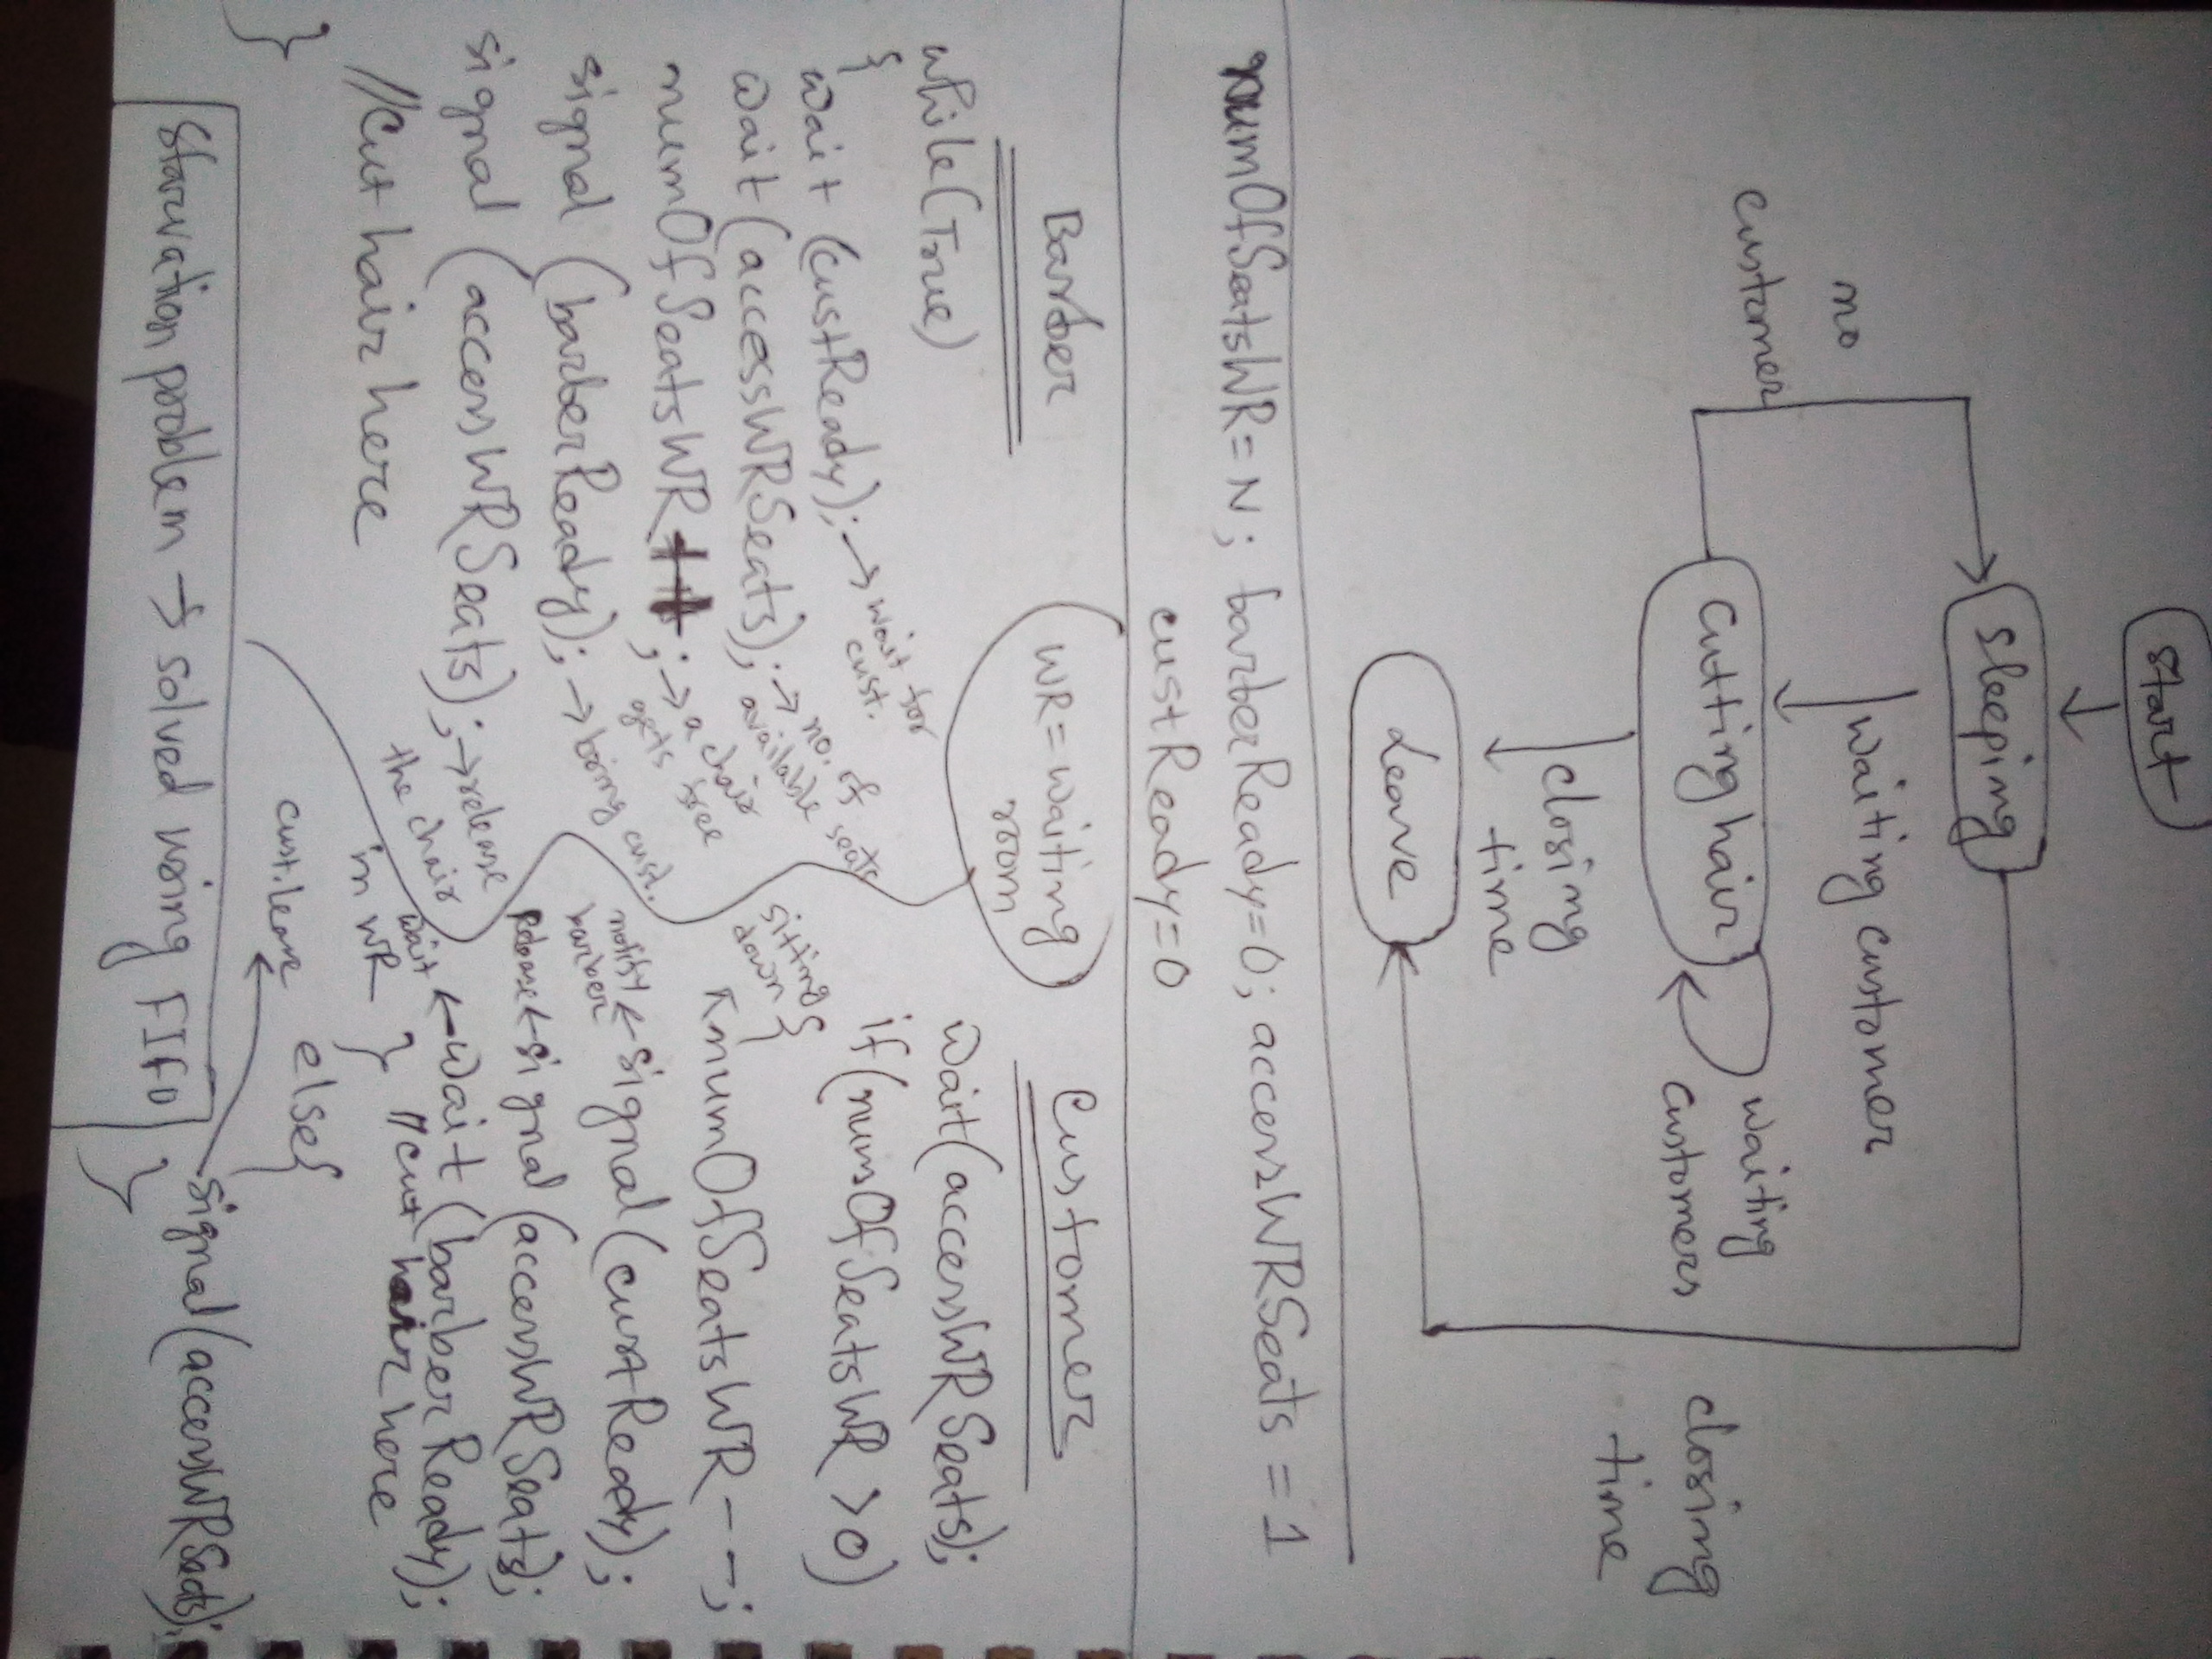 Start
Sleeping
waiting customer
no
customer
Cutting hair
waiting
customers
closing
time
closing
time
Leave
numOfSeatsWR=N; barberReady=0; accessWRSeats = 1
custReady=0
Barber
WR=Waiting
room
Customer
while(True)
{
wait (custReady); → wait for
cust.
wait(accessWRSeats); → no. of
available seats
numOfSeatsWR++; → a chair
gets free
signal (barberReady); → bring cust.
signal (accessWRSeats); → release
the chair
//Cut hair here
}
wait(accessWRSeats);
if(numOfSeatsWR >0)
{
sitting
down
numOfSeatsWR--;
notify
barber ← signal(custReady);
Release ← signal(accessWRSeats);
wait
in WR ← wait(barberReady);
} //cut hair here
else{
cust.leave
signal(accessWRSeats);
}
Starvation problem → solved using FIFO